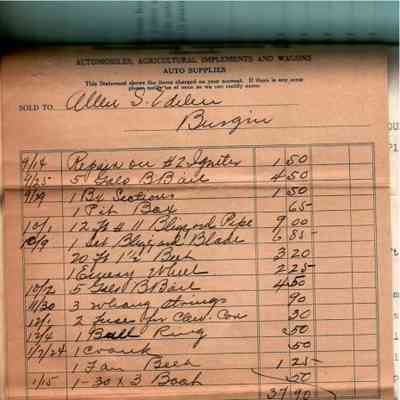 AUTOMOBILES, AGRICULTURAL IMPLEMENTS AND WAGONS
AUTO SUPPLIES
This Statement shows the items charged on your account. If there is any error
please notify us at once so we can rectify same.
SOLD TO Allen S. Edelen
Burgin
9/14 Repair on #2 Igniter 1 50
9/25 5 Gals B Bail 4 50
9/29 1 Bx Sections 1 50
1 Pit Box 65
10/1 12 ft # 11 Blizzard Pipe 9 00
10/9 1 Set Blizzard Blade 6 85
20 ft 1" Belt 3 20
1 Emery Wheel 2 25
10/2 5 Gals B Bail 4 50
11/30 3 whang strings 90
12/1 2 fuses for Caw. Con 30
12/4 1 Bull Ring 50
1/7/24 1 Crank 50
1 Fan Belt 1 25
1/15 1-30 x 3 Boot 50
37 90